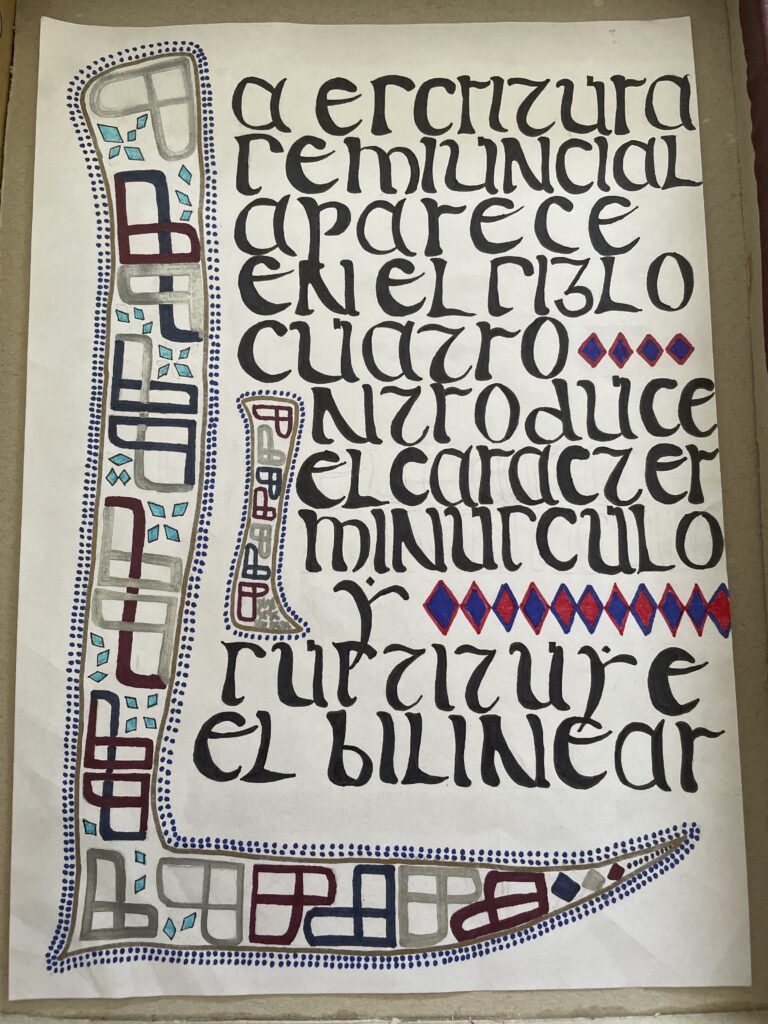 La escritura
semiuncial
aparece
en el siglo
cuatro
Introduce
el caracter
minusculo
y
sustituye
el bilinear